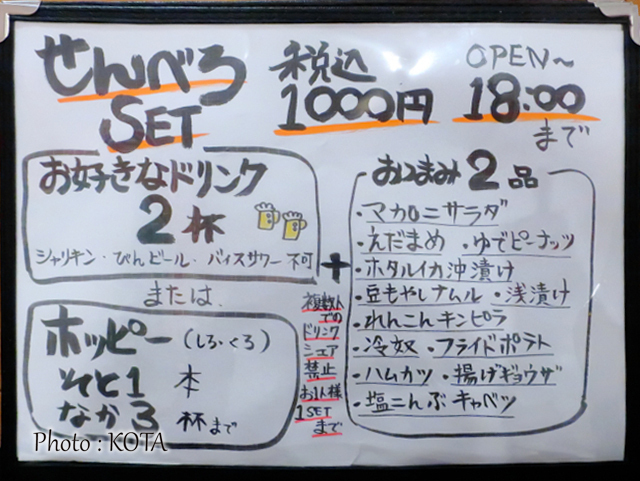 せんべろ
SET
税込
1000円
OPEN〜
18:00
まで
お好きなドリンク
2杯
シャリキン・びんビール・バイスサワー 不可
または
ホッピー (しろ・くろ)
そと1 本
なか3 杯まで
+
複数人
での
ドリンク
シェア
禁止
お1人様
1SET
まで
おつまみ 2品
・マカロニサラダ
・えだまめ ・ゆでピーナッツ
・ホタルイカ沖漬け
・豆もやしナムル ・浅漬け
・れんこんキンピラ
・冷奴 ・フライドポテト
・ハムカツ ・揚げギョウザ
・塩こんぶキャベツ
Photo : KOTA